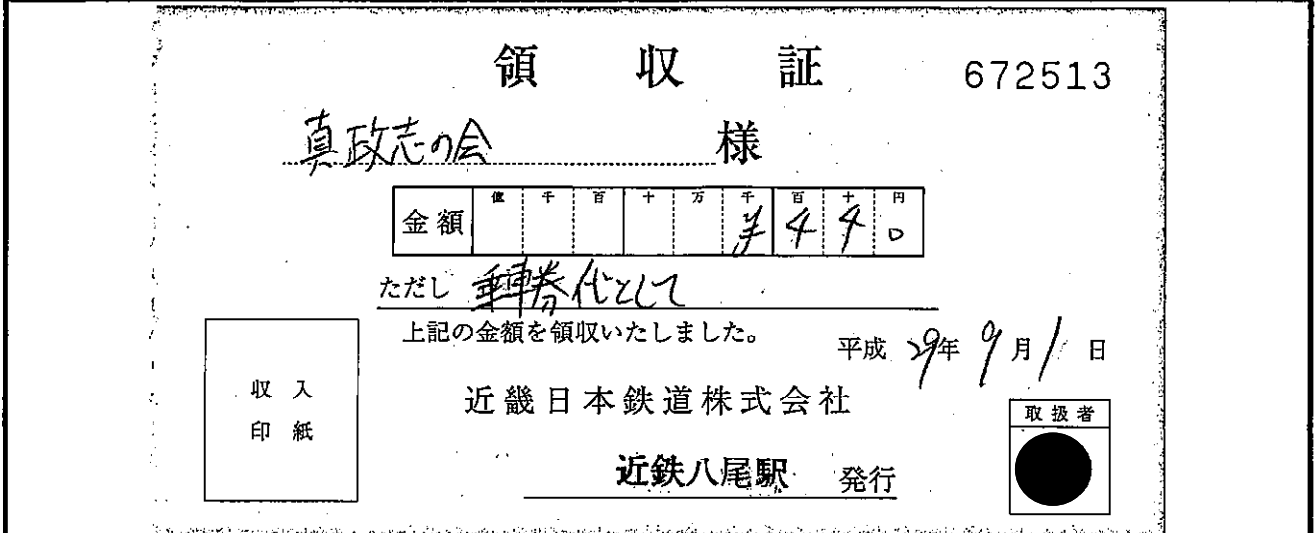 領収証 672513
真政志の会 様
金額 億 千 百 十 万 千 百 十 円
¥440
ただし 乗車券代として
上記の金額を領収いたしました。
平成 29年 9月 1日
収入
印紙
近畿日本鉄道株式会社
取扱者
近鉄八尾駅 発行